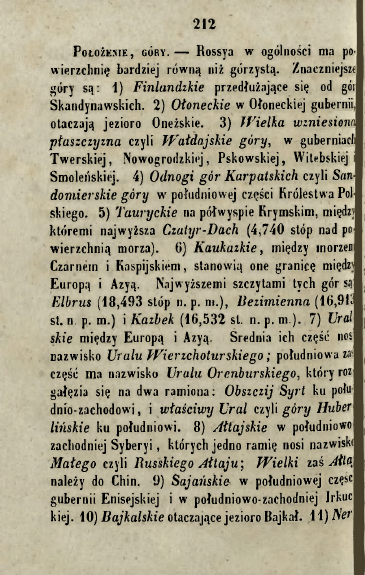 212
Położenie, góry. — Rossya w ogólności ma po-
wierzchnię bardziej równą niż górzystą. Znaczniejsze
góry są: 1) Finlandzkie przedłużające się od gór
Skandynawskich. 2) Ołoneckie w Ołoneckiej gubernii,
otaczają jezioro Oneżskie. 3) Wielka wzniesiona
płaszczyzna czyli Wałdajskie góry, w guberniach
Twerskiej, Nowogrodzkiej, Pskowskiej, Witebskiej i
Smoleńskiej. 4) Odnogi gór Karpatskich czyli San-
domierskie góry w południowej części Królestwa Pol-
skiego. 5) Tauryckie na półwyspie Krymskim, między
któremi najwyższa Czatyr-Dach (4,740 stóp nad po-
wierzchnią morza). 6) Kaukazkie, między morzem
Czarnem i Kaspijskiem, stanowią one granicę między
Europą i Azyą. Najwyższemi szczytami tych gór są
Elbrus (18,493 stóp n. p. m.), Bezimienna (16,913
st. n. p. m.) i Kazbek (16,532 st. n. p. m.). 7) Ural
skie między Europą i Azyą. Srednia ich część nosi
nazwisko Uralu Wierzchoturskiego; południowa zaś
część ma nazwisko Uralu Orenburskiego, który roz
gałęzia się na dwa ramiona: Obszczij Syrt ku połu-
dnio-zachodowi, i właściwy Ural czyli góry Huber
lińskie ku południowi. 8) Ałtajskie w południowo
zachodniej Syberyi, których jedno ramię nosi nazwisko
Małego czyli Russkiego Ałtaju; Wielki zaś Ałta
należy do Chin. 9) Sajańskie w południowej częśc
gubernii Enisejskiej i w południowo-zachodniej Irkuc
kiej. 10) Bajkalskie otaczające jezioro Bajkał. 11) Ner